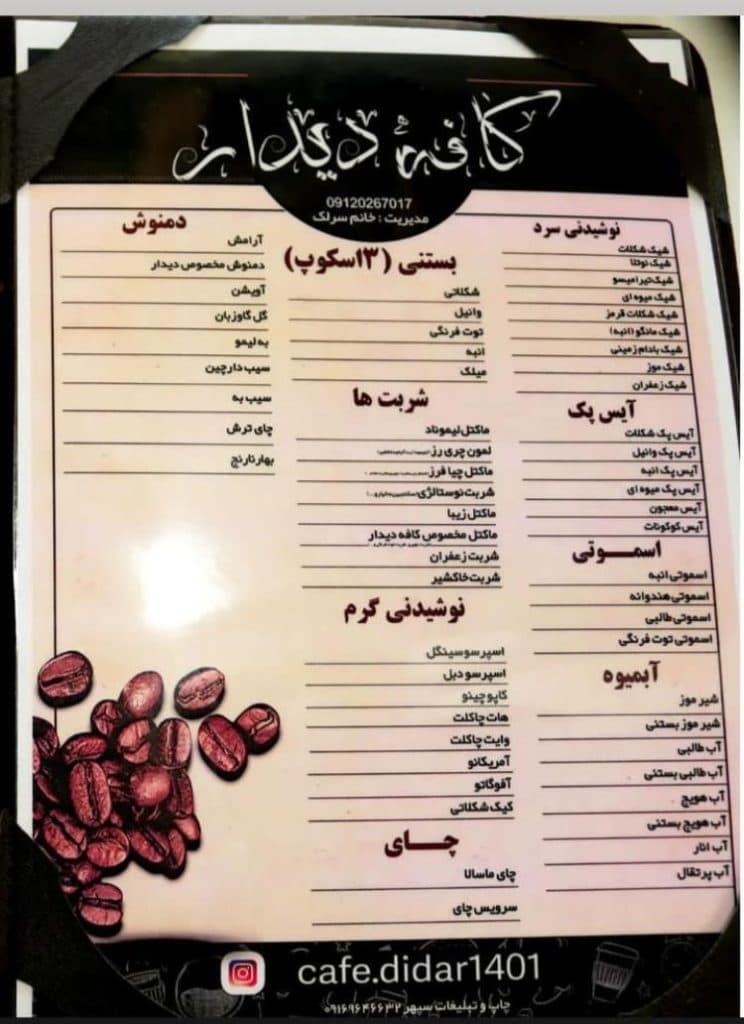 کافه دیدار
09120267017
مدیریت : خانم سرلک
نوشیدنی سرد
شیک شکلات
شیک نوتلا
شیک تیرامیسو
شیک میوه ای
شیک شکلات قرمز
شیک مانگو (انبه)
شیک بادام زمینی
شیک موز
شیک زعفران
آیس پک
آیس پک شکلات
آیس پک وانیل
آیس پک انبه
آیس پک میوه ای
آیس معجون
آیس کوکونات
اسموتی
اسموتی انبه
اسموتی هندوانه
اسموتی طالبی
اسموتی توت فرنگی
آبمیوه
شیر موز
شیر موز بستنی
آب طالبی
آب طالبی بستنی
آب هویج
آب هویج بستنی
آب انار
آب پرتقال
بستنی (۳اسکوپ)
شکلاتی
وانیل
توت فرنگی
انبه
میلک
شربت ها
ماکتل لیموناد
لمون چری رز
ماکتل چیا فرز
شربت نوستالژی
ماکتل زیبا
ماکتل مخصوص کافه دیدار
شربت زعفران
شربت خاکشیر
نوشیدنی گرم
اسپرسو سینگل
اسپرسو دبل
کاپوچینو
هات چاکلت
وایت چاکلت
آمریکانو
آفوگاتو
کیک شکلاتی
چای
چای ماسالا
سرویس چای
دمنوش
آرامش
دمنوش مخصوص دیدار
آویشن
گل گاوزبان
به لیمو
سیب دارچین
سیب به
چای ترش
بهارنارنج
cafe.didar1401
چاپ و تبلیغات سپهر ۰۹۱۶۹۶۴۶۶۳۲